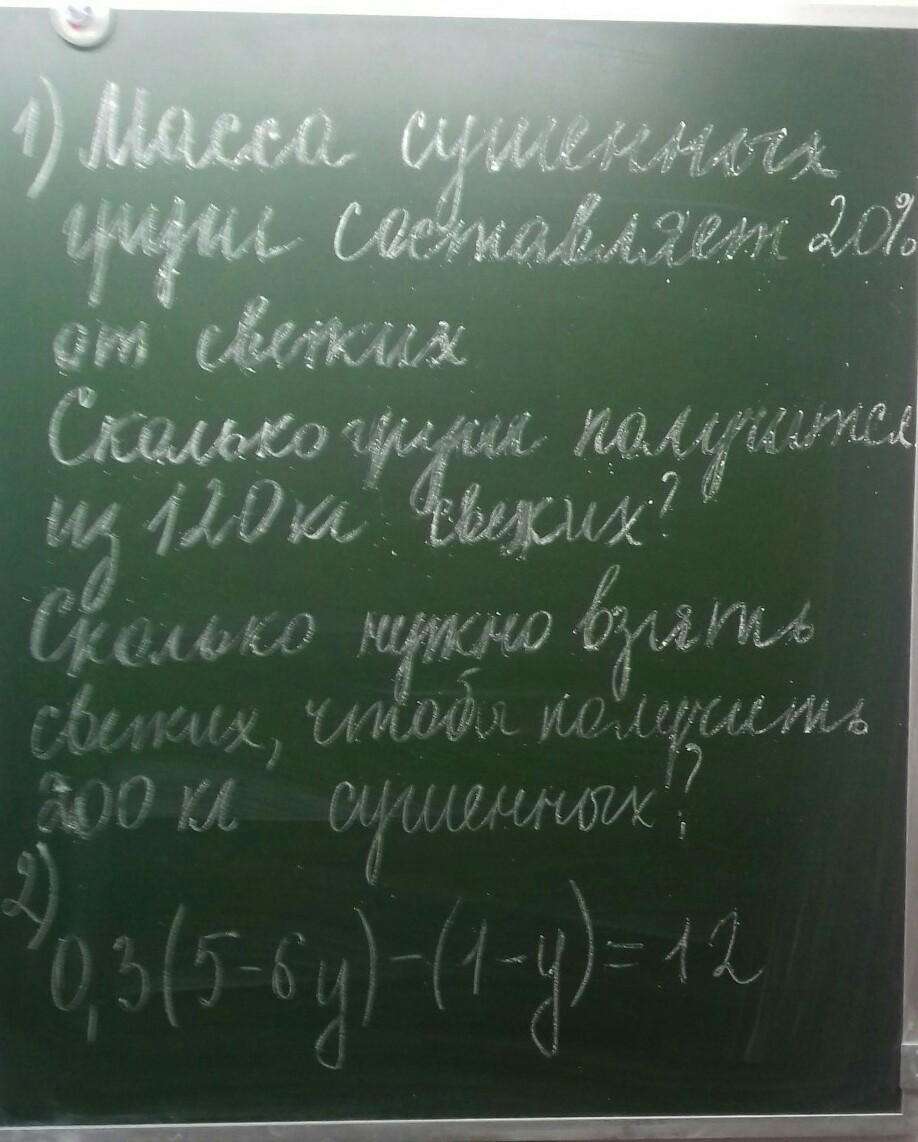 1) Масса сушенных
груш составляет 20%
от свежих
Сколько груш получится
из 120 кг свежих?
Сколько нужно взять
свежих, чтобы получить
200 кг сушенных?
2)
0,3(5-6y)-(1-y)=12